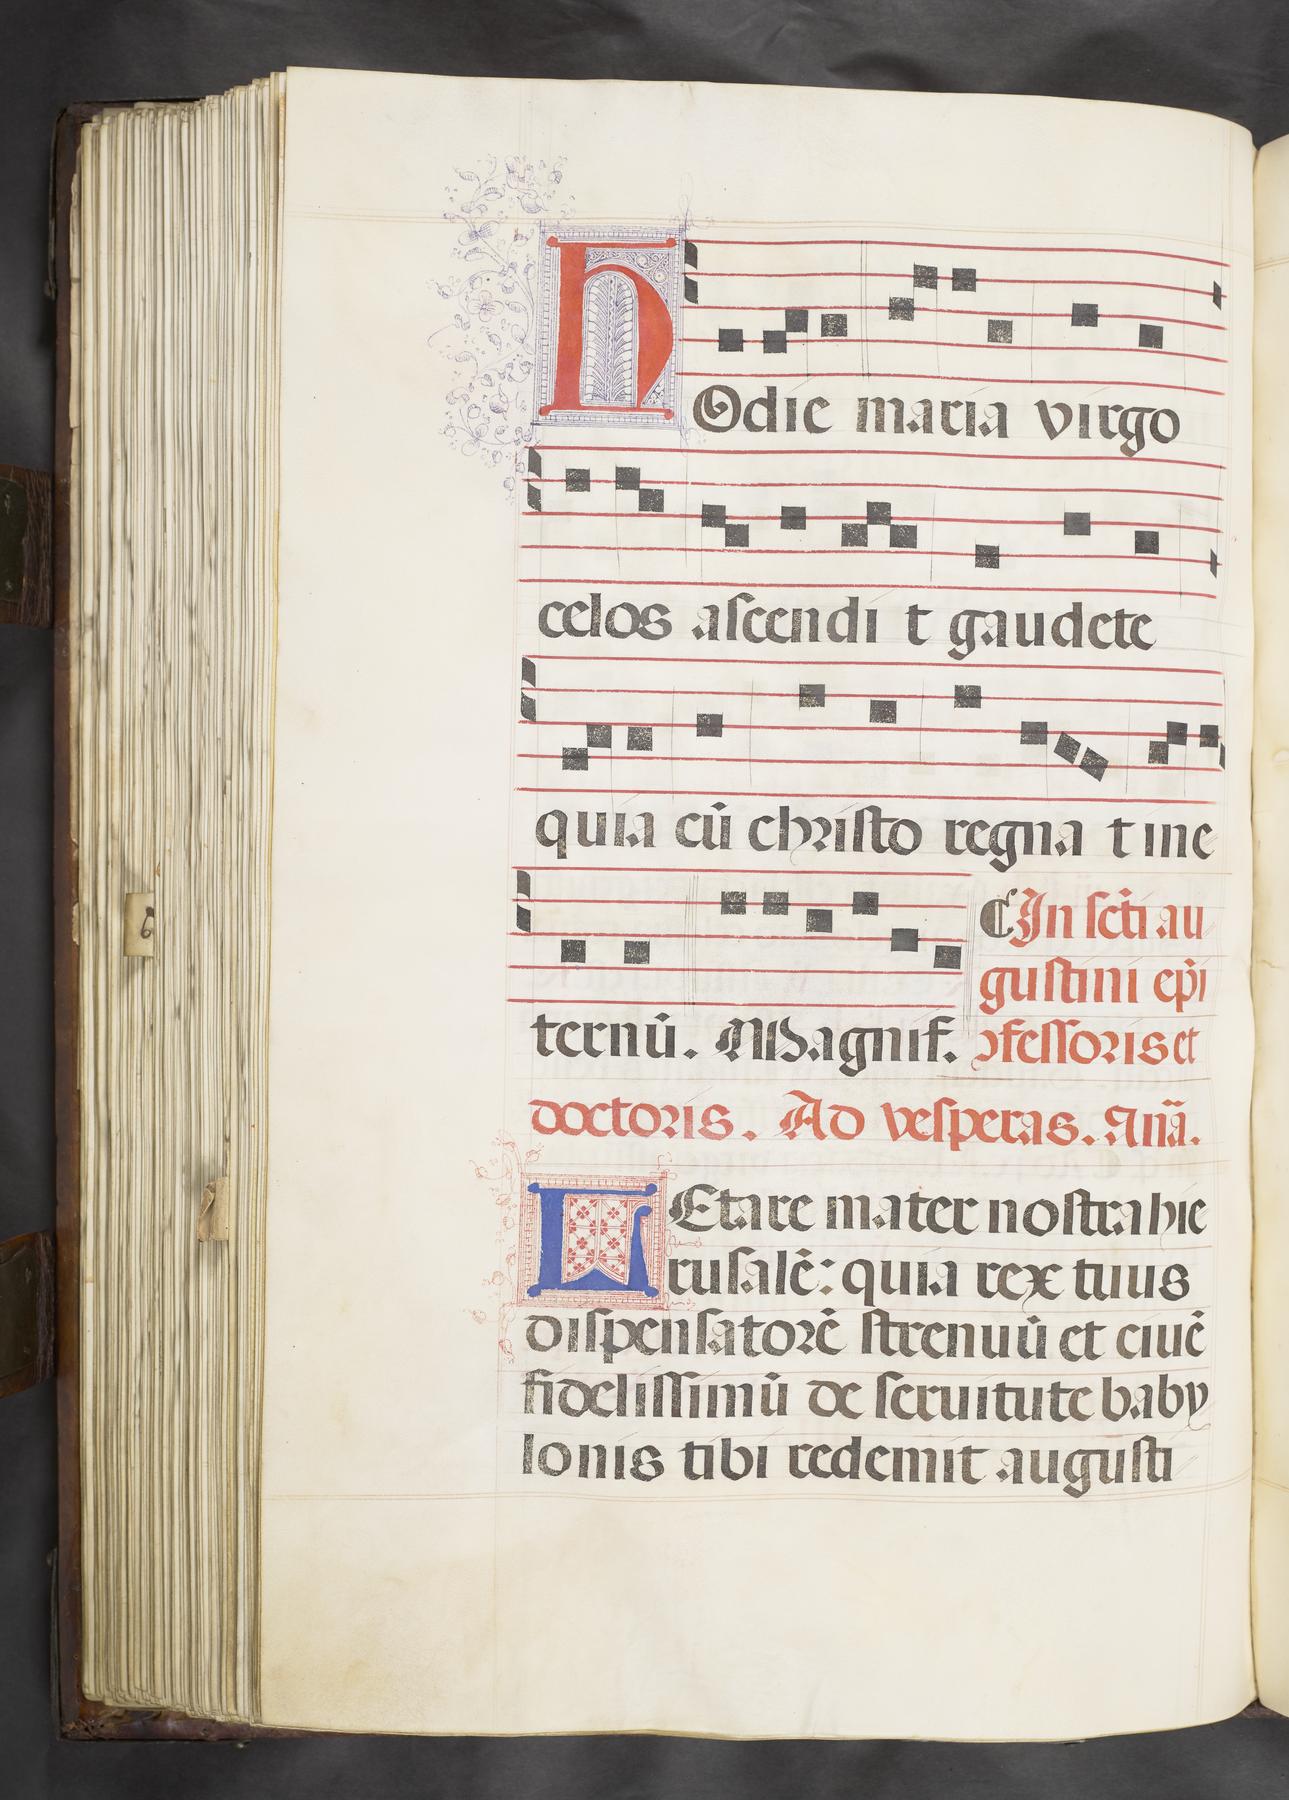 HOdie maria virgo
celos ascendi t gaudete
quia cū christo regna t ine
ternū. Magnif.
¶ In scti au
gustini epi
ↄfessoris et
doctoris. Ad vesperas. Anā.
LEtare mater nostra hie
rusalē: quia rex tuus
dispensatorē strenuū et ciuē
fidelissimū de seruitute baby
lonis tibi redemit augusti